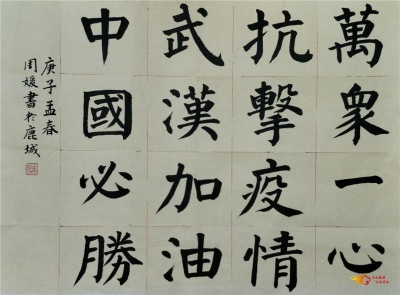 萬眾一心
抗擊疫情
武漢加油
中國必勝
庚子孟春
周媛書於鹿城